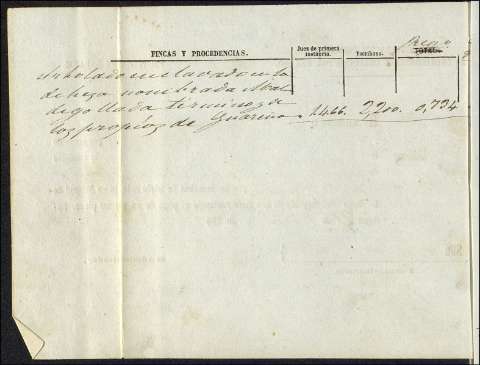 FINCAS Y PROCEDENCIAS.
Juez de primera instancia.
Escribano.
TOTAL.
Arbolado enclavado en la
dehesa nombrada
degollada termino y de
los propios de Guareña 1.466. 2,200. 0,734